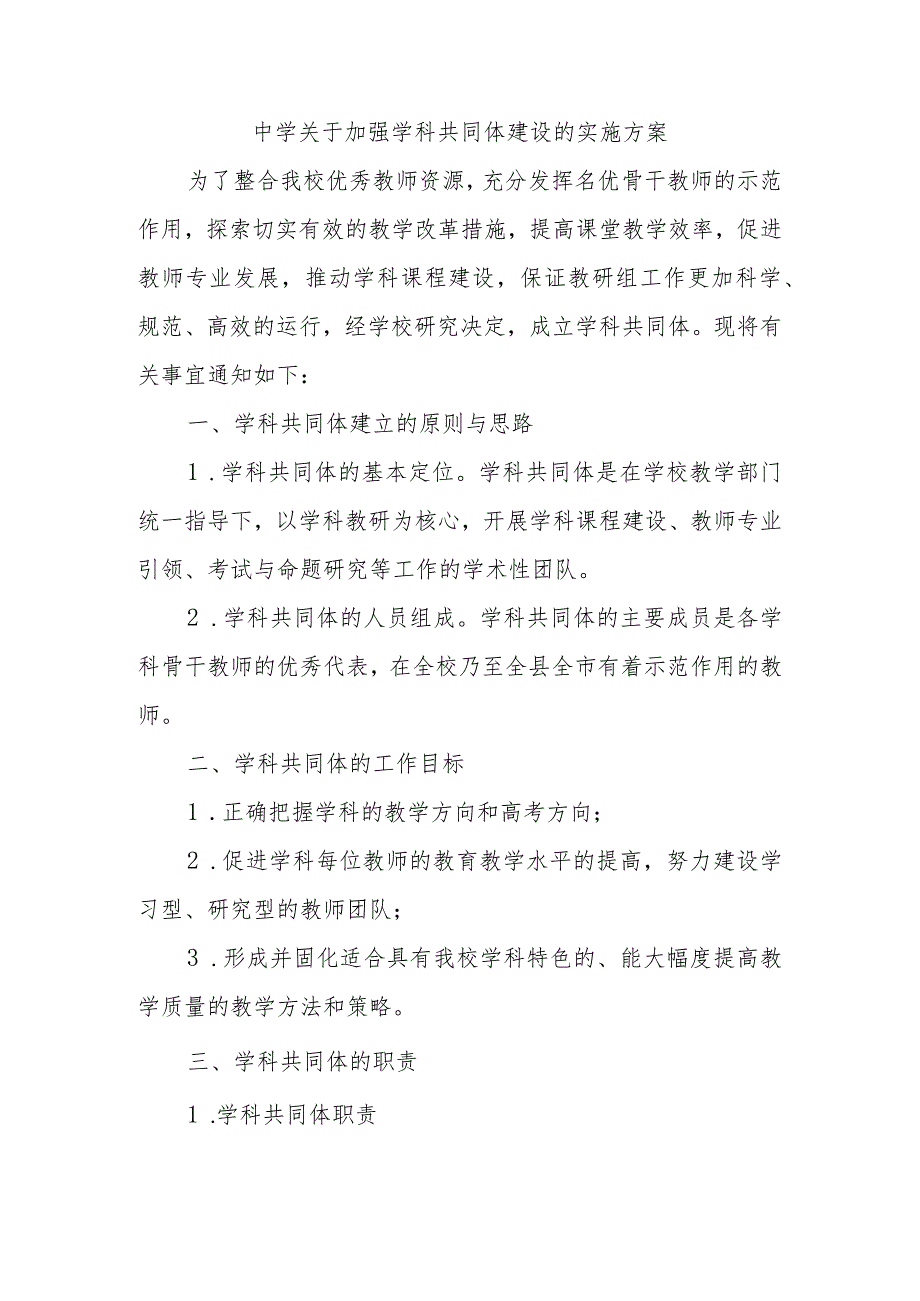 中学关于加强学科共同体建设的实施方案
为了整合我校优秀教师资源，充分发挥名优骨干教师的示范
作用，探索切实有效的教学改革措施，提高课堂教学效率，促进
教师专业发展，推动学科课程建设，保证教研组工作更加科学、
规范、高效的运行，经学校研究决定，成立学科共同体。现将有
关事宜通知如下：
一、学科共同体建立的原则与思路
1 .学科共同体的基本定位。学科共同体是在学校教学部门
统一指导下，以学科教研为核心，开展学科课程建设、教师专业
引领、考试与命题研究等工作的学术性团队。
2 .学科共同体的人员组成。学科共同体的主要成员是各学
科骨干教师的优秀代表，在全校乃至全县全市有着示范作用的教
师。
二、学科共同体的工作目标
1 .正确把握学科的教学方向和高考方向；
2 .促进学科每位教师的教育教学水平的提高，努力建设学
习型、研究型的教师团队；
3 .形成并固化适合具有我校学科特色的、能大幅度提高教
学质量的教学方法和策略。
三、学科共同体的职责
1 .学科共同体职责